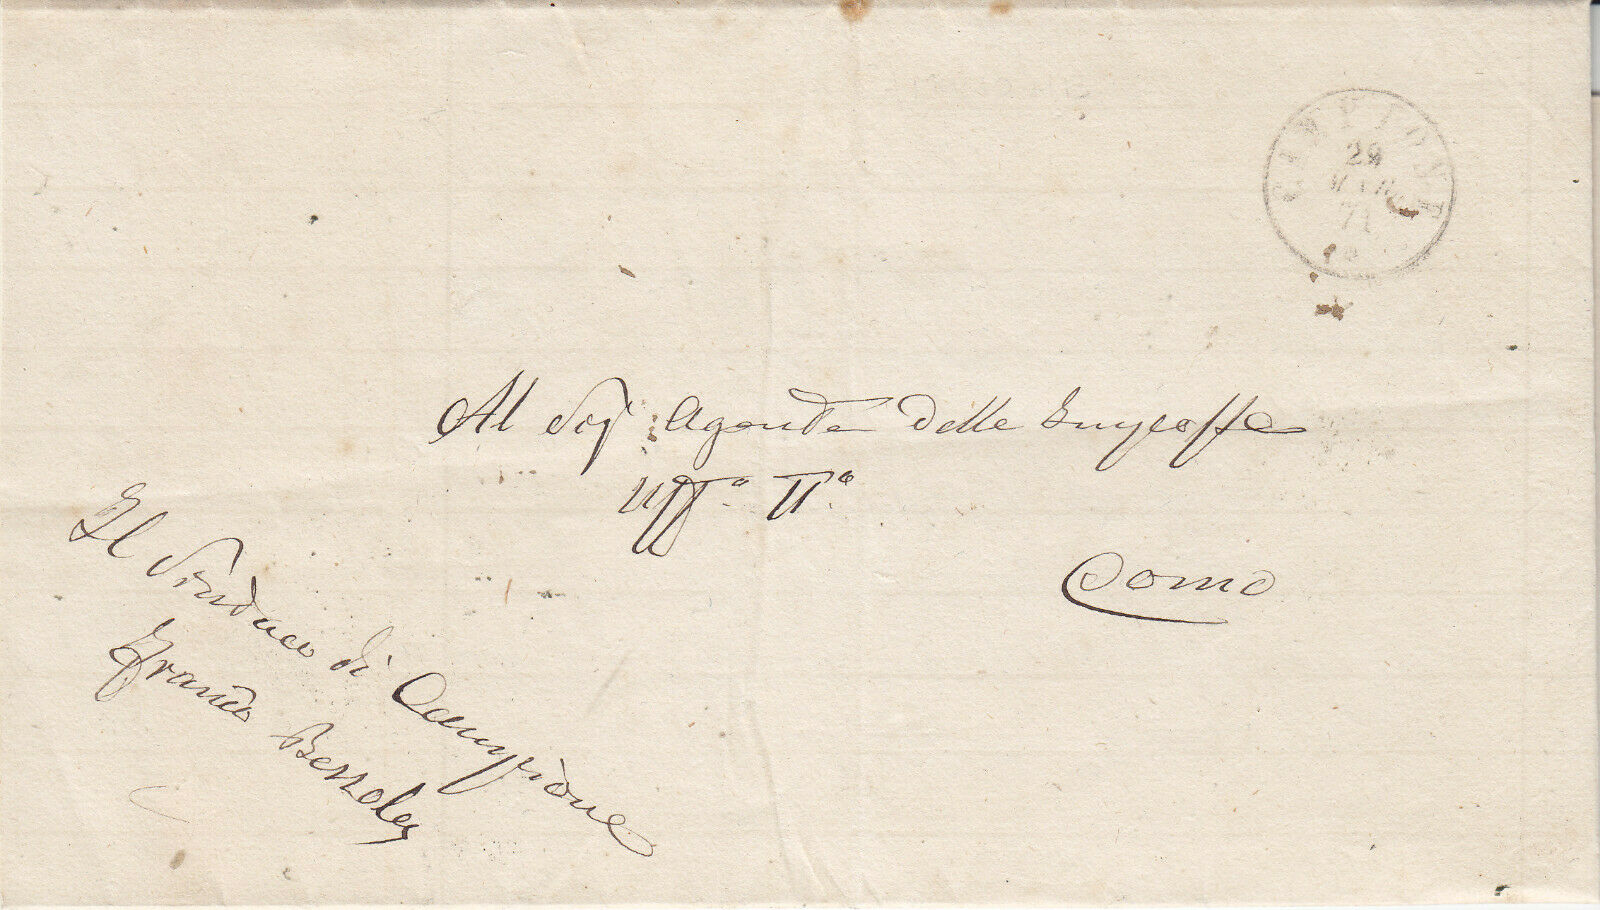 CAMPIONE
28
MAR
71
Al Sig. Agente delle Imposte
Uff.º II.º
Como
Il Sindaco di Campione
Franco